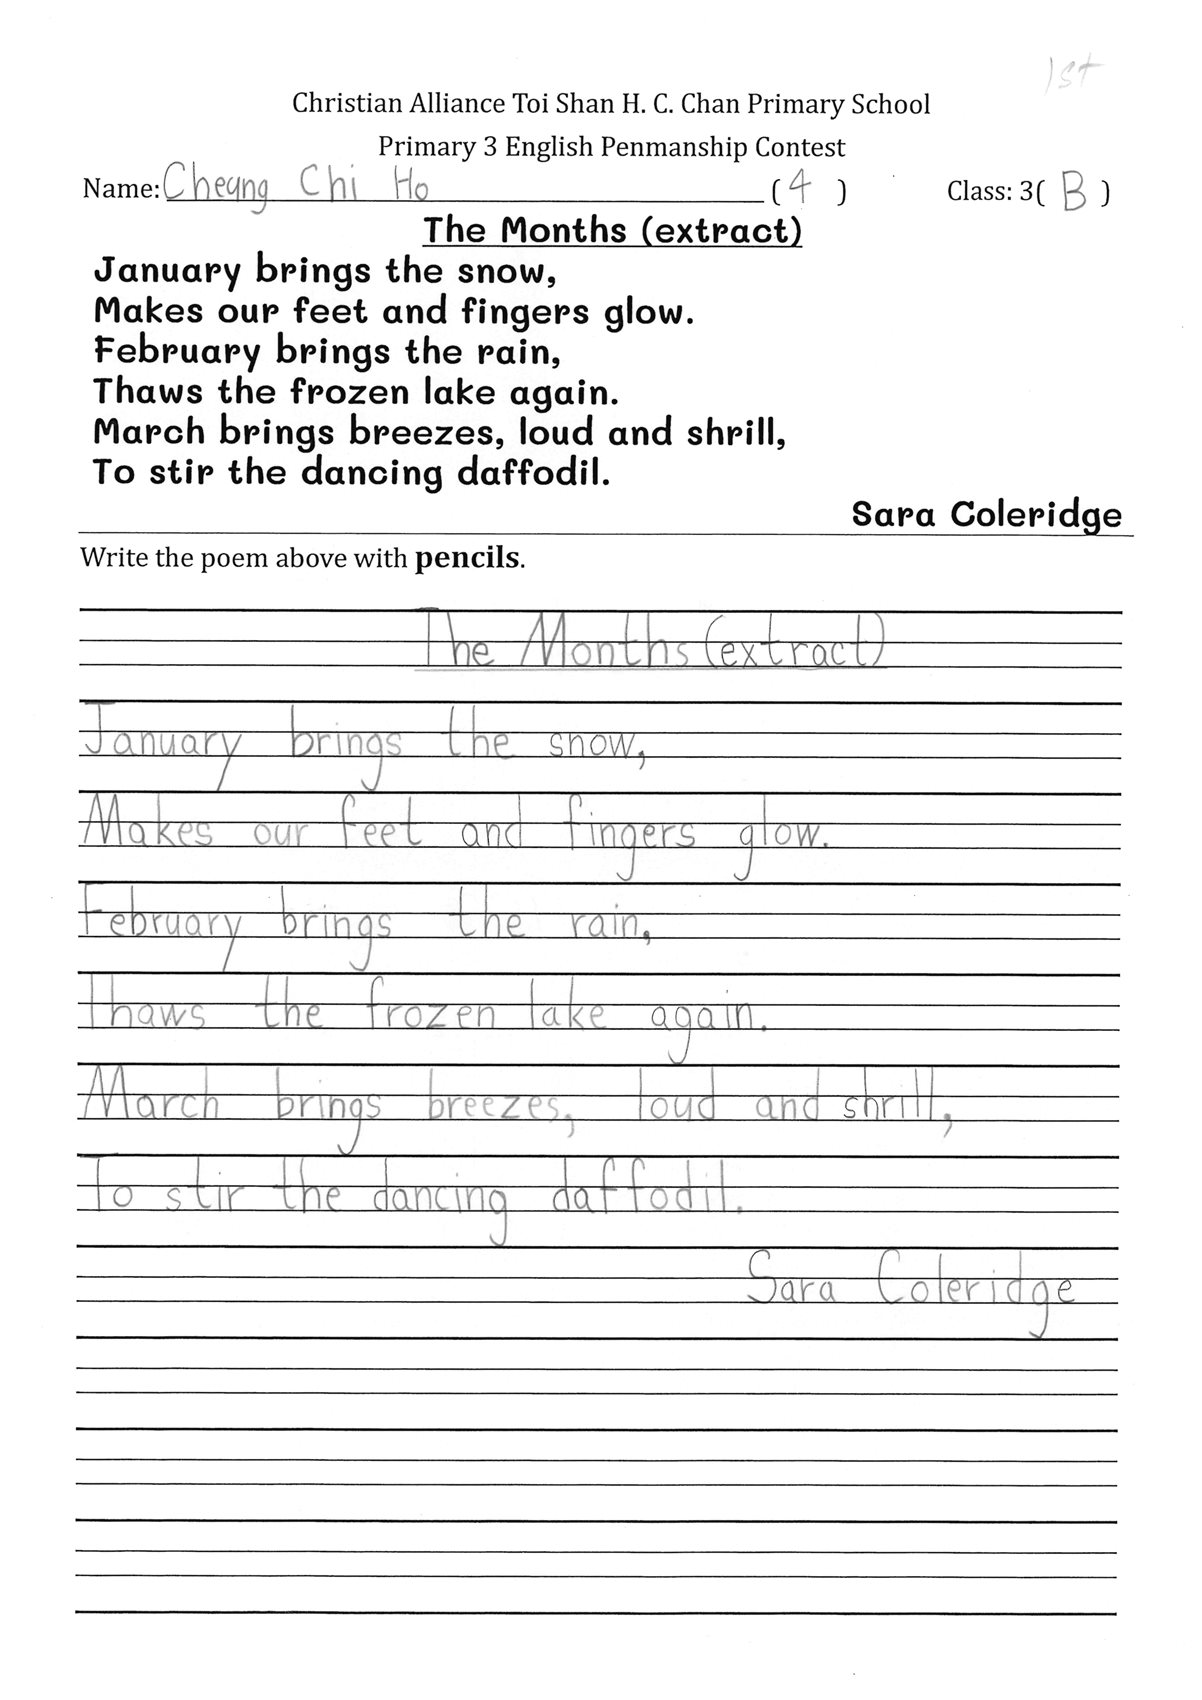 1st
Christian Alliance Toi Shan H. C. Chan Primary School
Primary 3 English Penmanship Contest
Name: Cheung Chi Ho ( 4 ) Class: 3( B )
The Months (extract)
January brings the snow,
Makes our feet and fingers glow.
February brings the rain,
Thaws the frozen lake again.
March brings breezes, loud and shrill,
To stir the dancing daffodil.
Sara Coleridge
Write the poem above with pencils.
The Months (extract)
January brings the snow,
Makes our feet and fingers glow.
February brings the rain,
Thaws the frozen lake again.
March brings breezes, loud and shrill,
To stir the dancing daffodil.
Sara Coleridge